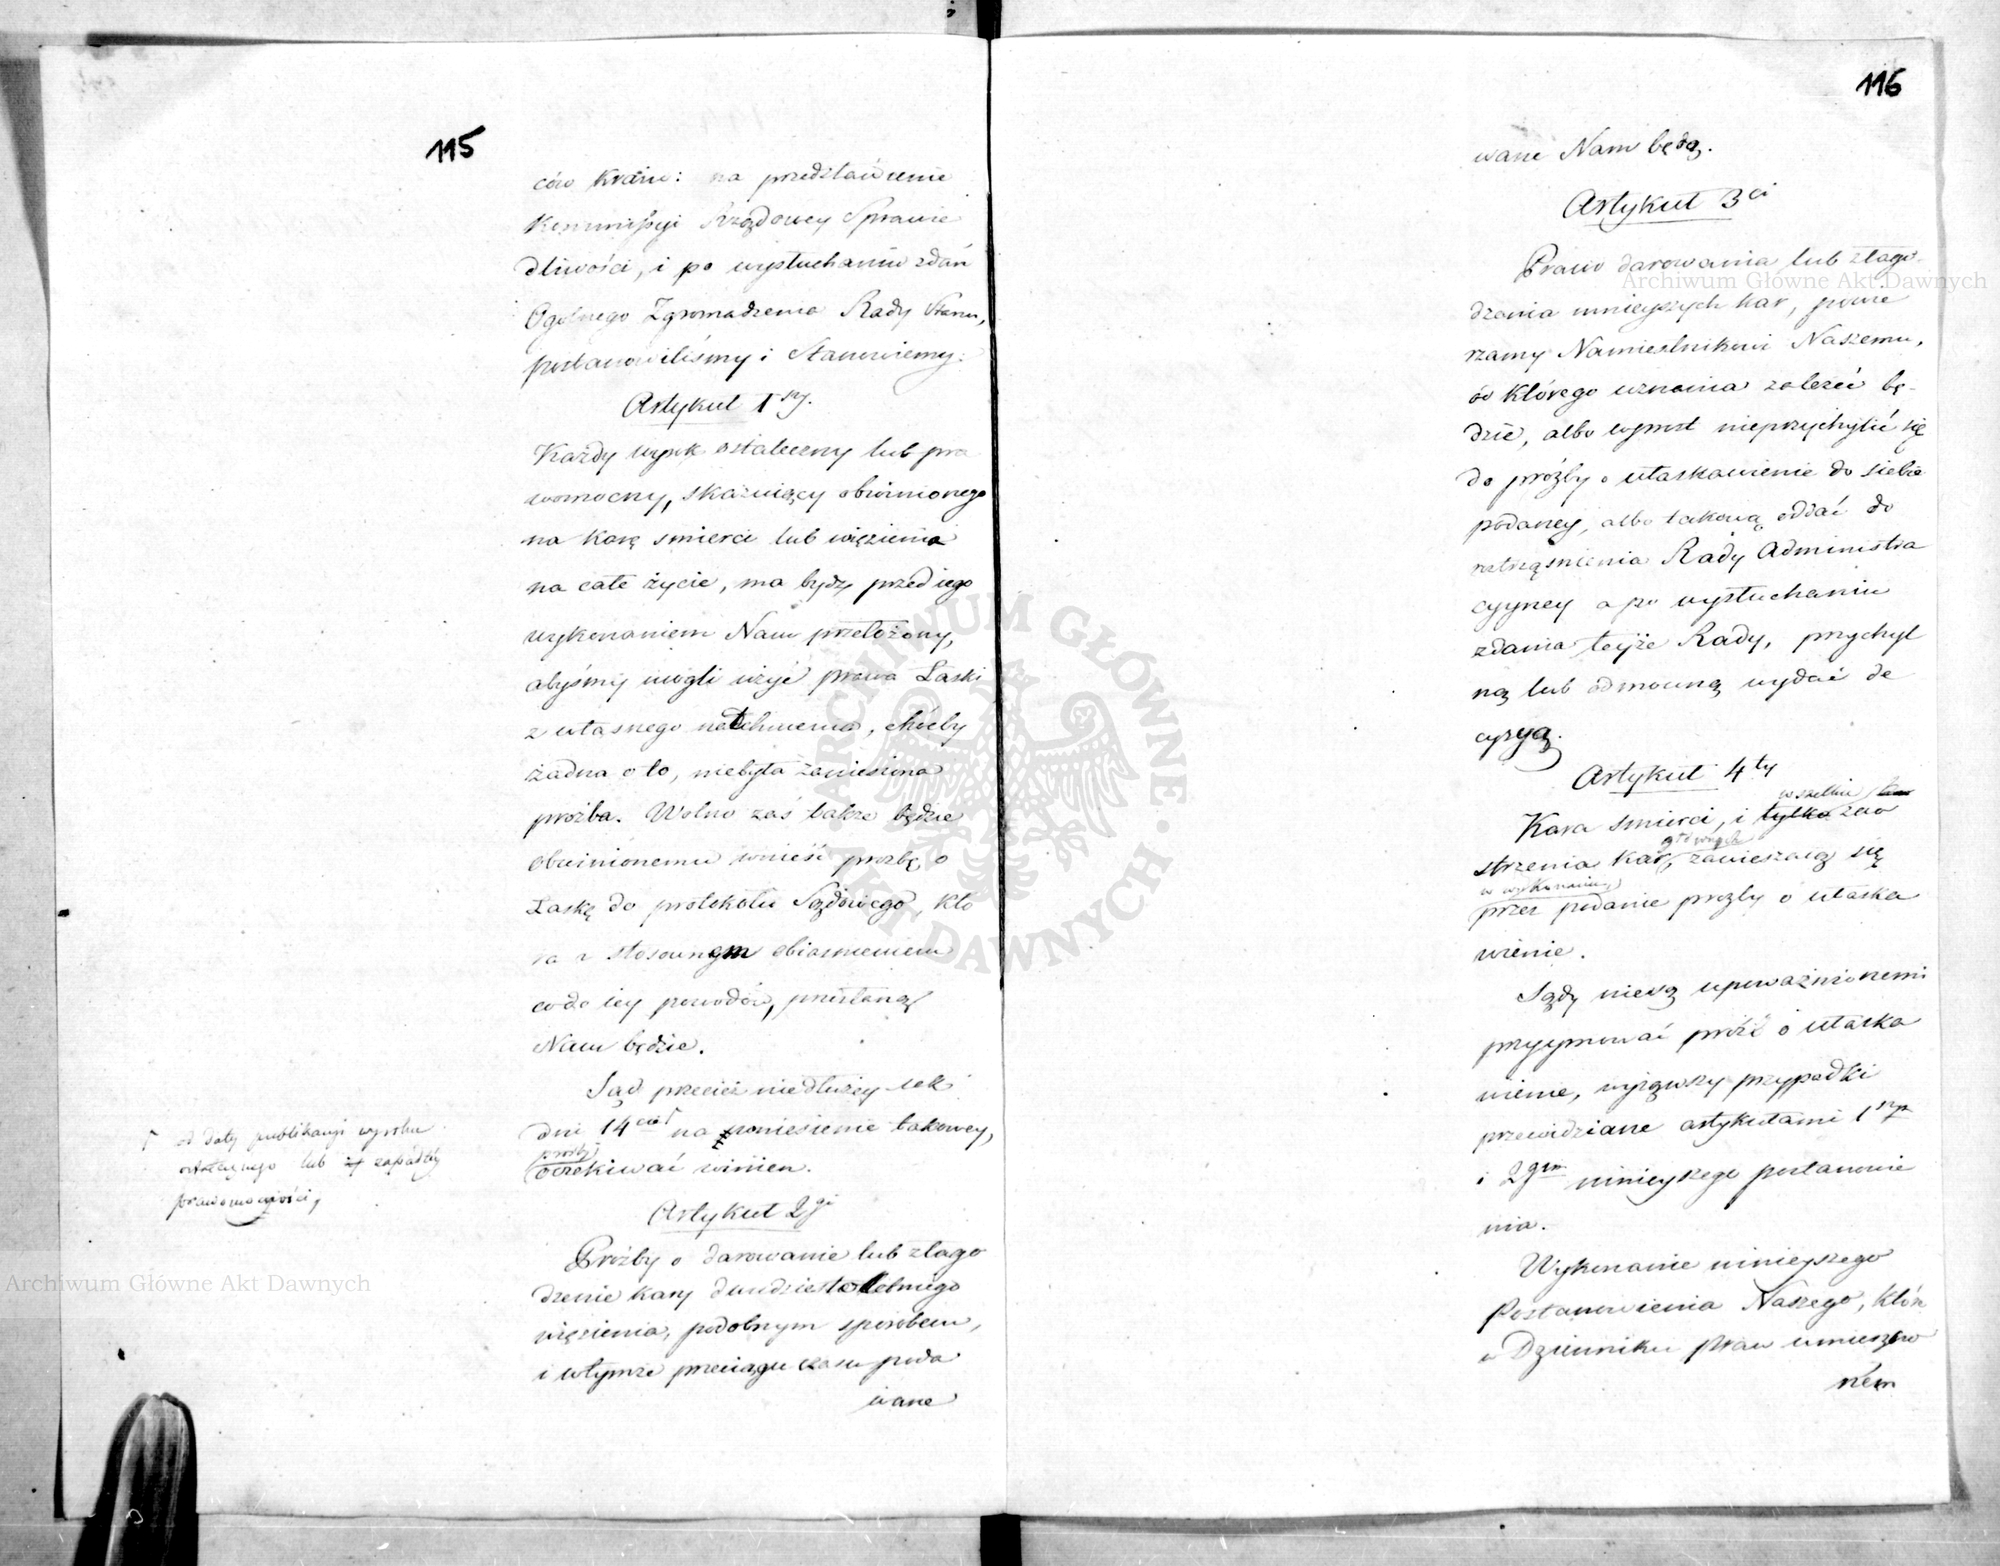 115
ców kraiu: na przedstawienie
Kommissyi Rządowey Sprawie
dliwości, i po wysłuchaniu zdań
Ogólnego Zgromadzenia Rady Stanu,
postanowiliśmy i Stanowiemy:
Artykuł 1szy.
Każdy wyrok ostateczny lub pra
womocny, skazuiący obwinionego
na karę śmierci lub więzienia
na całe życie, ma bydź przed iego
wykonaniem Nam przełożony,
abyśmy mogli użyć prawa Łaski
z własnego natchnienia, chóćby
żadna o to, niebyła zaniesiona
proźba. Wolno zaś także będzie
obwinionemu wnieść prozbę o
Łaskę do protokołu Sądowego, któ
ra z stosownym obiasnieniem
co do iey powodów, przesłaną
Nam będzie.
Sąd przecież niedłużey iak
dni 14cie Γ na poniesienie takowey
proźby
oczekiwać winien.
Γ od daty publikacyi wyroku
ostatecznego lub zapadłey
prawomocności,
Artykuł 2gi
Proźby o darowanie lub złago
dzenie kary dwudziestoletniego
więzienia, podobnym sposobem,
i wtymże przeciągu czasu poda
wane
116
wane Nam będą.
Artykuł 3ci
Prawo darowania lub złago-
dzenia mnieyszych kar, powie
rzamy Namiestnikowi Naszemu,
od którego uznania zależeć bę-
dzie, albo wprost nieprzychylić się
do proźby o ułaskawienie do siebie
podaney, albo takową oddać do
roztrząśnienia Rady Administra
cyyney a po wysłuchaniu
zdania teyże Rady, przychyl
ną lub odmowną wydać de
cyzyą.
Artykuł 4ty
wszelkie
Kara śmierci, i tylko zao
głównych
strzenia kar, zawieszaią się
w wykonaniu
przez podanie prozby o ułaska
wienie.
Sądy niesą upoważnionemi
przyymować próźb o ułaska
wienie, wyiąwszy przypadki
przewidziane artykułami 1szym
i 2gim ninieyszego postanowie
nia.
Wykonanie ninieyszego
Postanowienia Naszego, które
w Dzienniku Praw umieszczo
nem
Archiwum Główne Akt Dawnych
Archiwum Główne Akt Dawnych
ARCHIWUM GŁÓWNE · AKT DAWNYCH ·